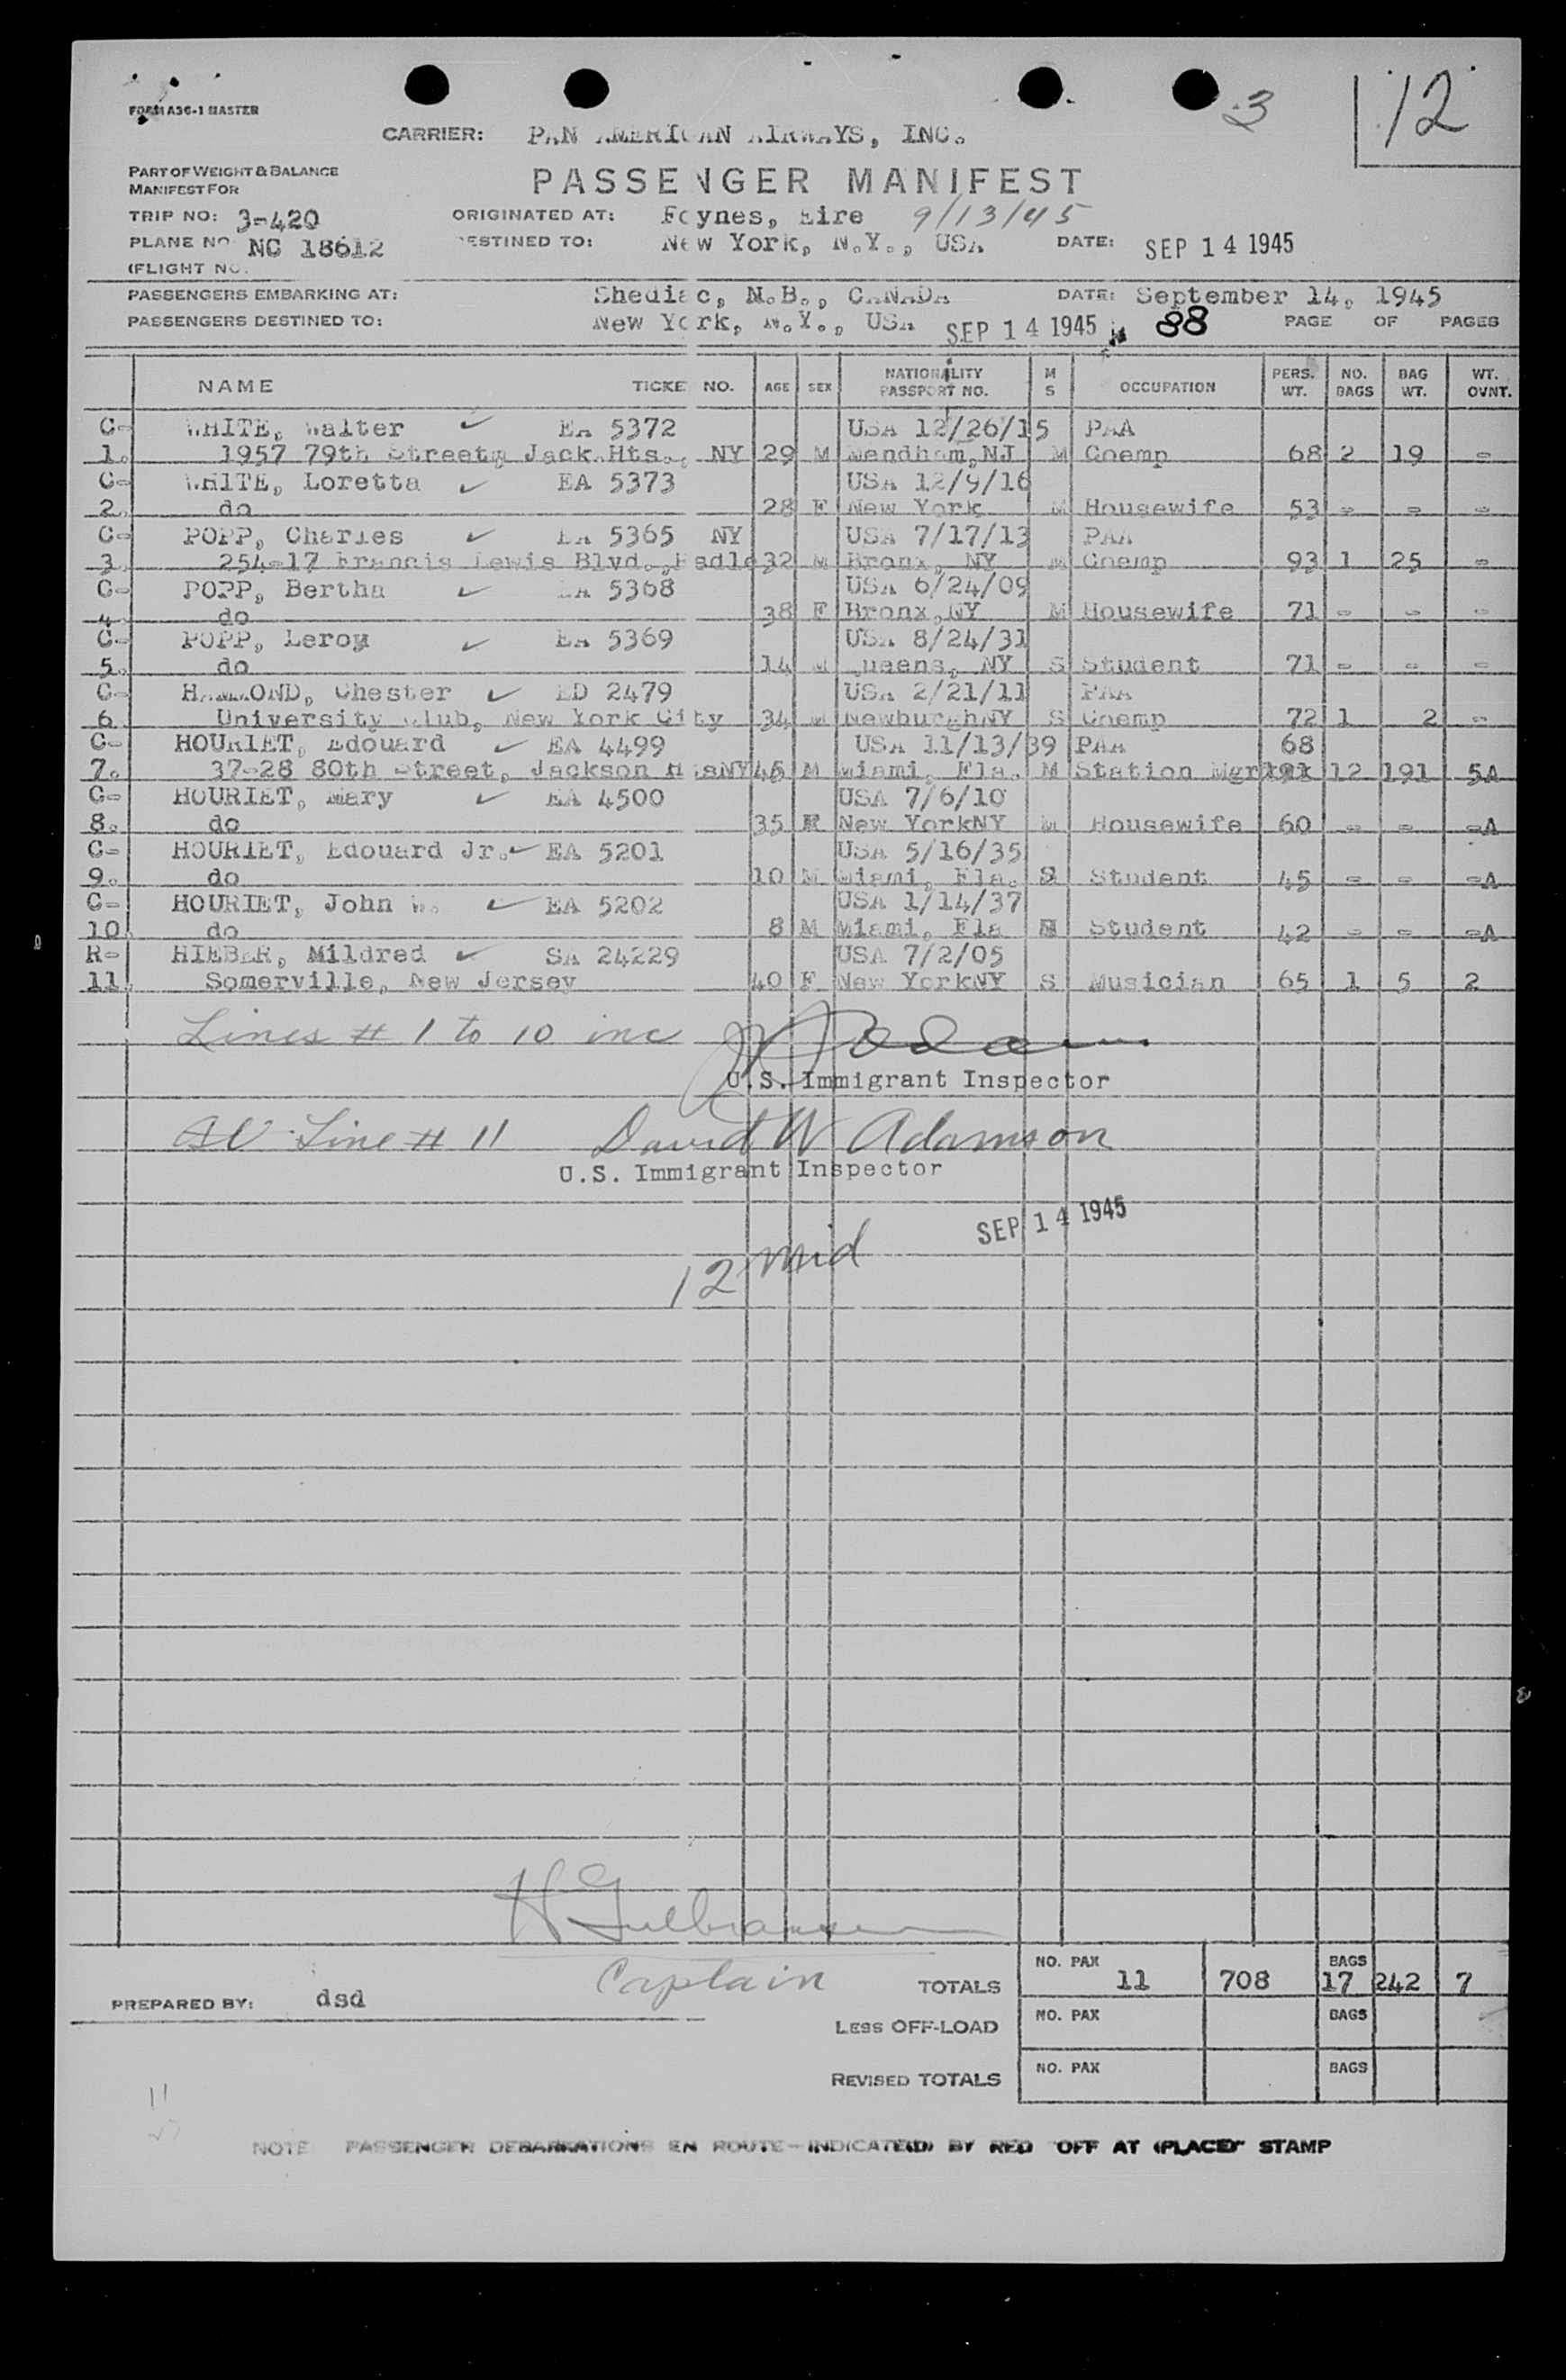 3 12
FORM A36-1 MASTER
CARRIER: PAN AMERICAN AIRWAYS, INC.
PART OF WEIGHT & BALANCE
MANIFEST FOR
PASSENGER MANIFEST
TRIP NO: 3-420 ORIGINATED AT: Foynes, Eire 9/13/45
PLANE NO NC 18612 DESTINED TO: New York, N.Y., USA DATE: SEP 14 1945
(FLIGHT NO.
PASSENGERS EMBARKING AT: Shediac, N.B., CANADA DATE: September 14, 1945
PASSENGERS DESTINED TO: New York, N.Y., USA SEP 14 1945 88 PAGE OF PAGES
NAME TICKE NO. AGE SEX NATIONALITY PASSPORT NO. M S OCCUPATION PERS. WT. NO. BAGS BAG WT. WT. OVNT.
C- WHITE, Walter ✓ EA 5372 USA 12/26/15 PAA
1. 1957 79th Street, Jack.Hts., NY 29 M Mendham,NJ M Coemp 68 2 19 -
C- WHITE, Loretta ✓ EA 5373 USA 12/9/16
2. do 28 F New York M Housewife 53 - - -
C- POPP, Charles ✓ EA 5365 NY USA 7/17/13 PAA
3. 254-17 Francis Lewis Blvd., 32 M Bronx, NY M Coemp 93 1 25 -
C- POPP, Bertha ✓ EA 5368 USA 6/24/09
4. do 38 F Bronx,NY M Housewife 71 - - -
C- POPP, Leroy ✓ EA 5369 USA 8/24/31
5. do 14 M Queens, NY S Student 71 - - -
C- HAMMOND, Chester ✓ ED 2479 USA 2/21/11 PAA
6. University Club, New York City 34 M NewburghNY S Coemp 72 1 2 -
C- HOURIET, Edouard ✓ EA 4499 USA 11/13/39 PAA 68
7. 37-28 80th Street, Jackson HtsNY 45 M Miami, Fla. M Station Mgr 12 191 5A
C- HOURIET, Mary ✓ EA 4500 USA 7/6/10
8. do 35 F New YorkNY M Housewife 60 - - -A
C- HOURIET, Edouard Jr. ✓ EA 5201 USA 5/16/35
9. do 10 M Miami, Fla. S Student 45 - - -A
C- HOURIET, John W. ✓ EA 5202 USA 1/14/37
10. do 8 M Miami, Fla Student 42 - - -A
R- HIEBER, Mildred ✓ SA 24229 USA 7/2/05
11. Somerville, New Jersey 40 F New YorkNY S Musician 65 1 5 2
Lines # 1 to 10 inc
U.S. Immigrant Inspector
Line # 11 David W Adamson
U.S. Immigrant Inspector
SEP 14 1945
12 Mid
Captain
NO. PAX BAGS
TOTALS 11 708 17 242 7
PREPARED BY: dsd
LESS OFF-LOAD NO. PAX BAGS
REVISED TOTALS NO. PAX BAGS
11
NOTE PASSENGER DEBARKATIONS EN ROUTE - INDICATED BY RED "OFF AT (PLACE)" STAMP